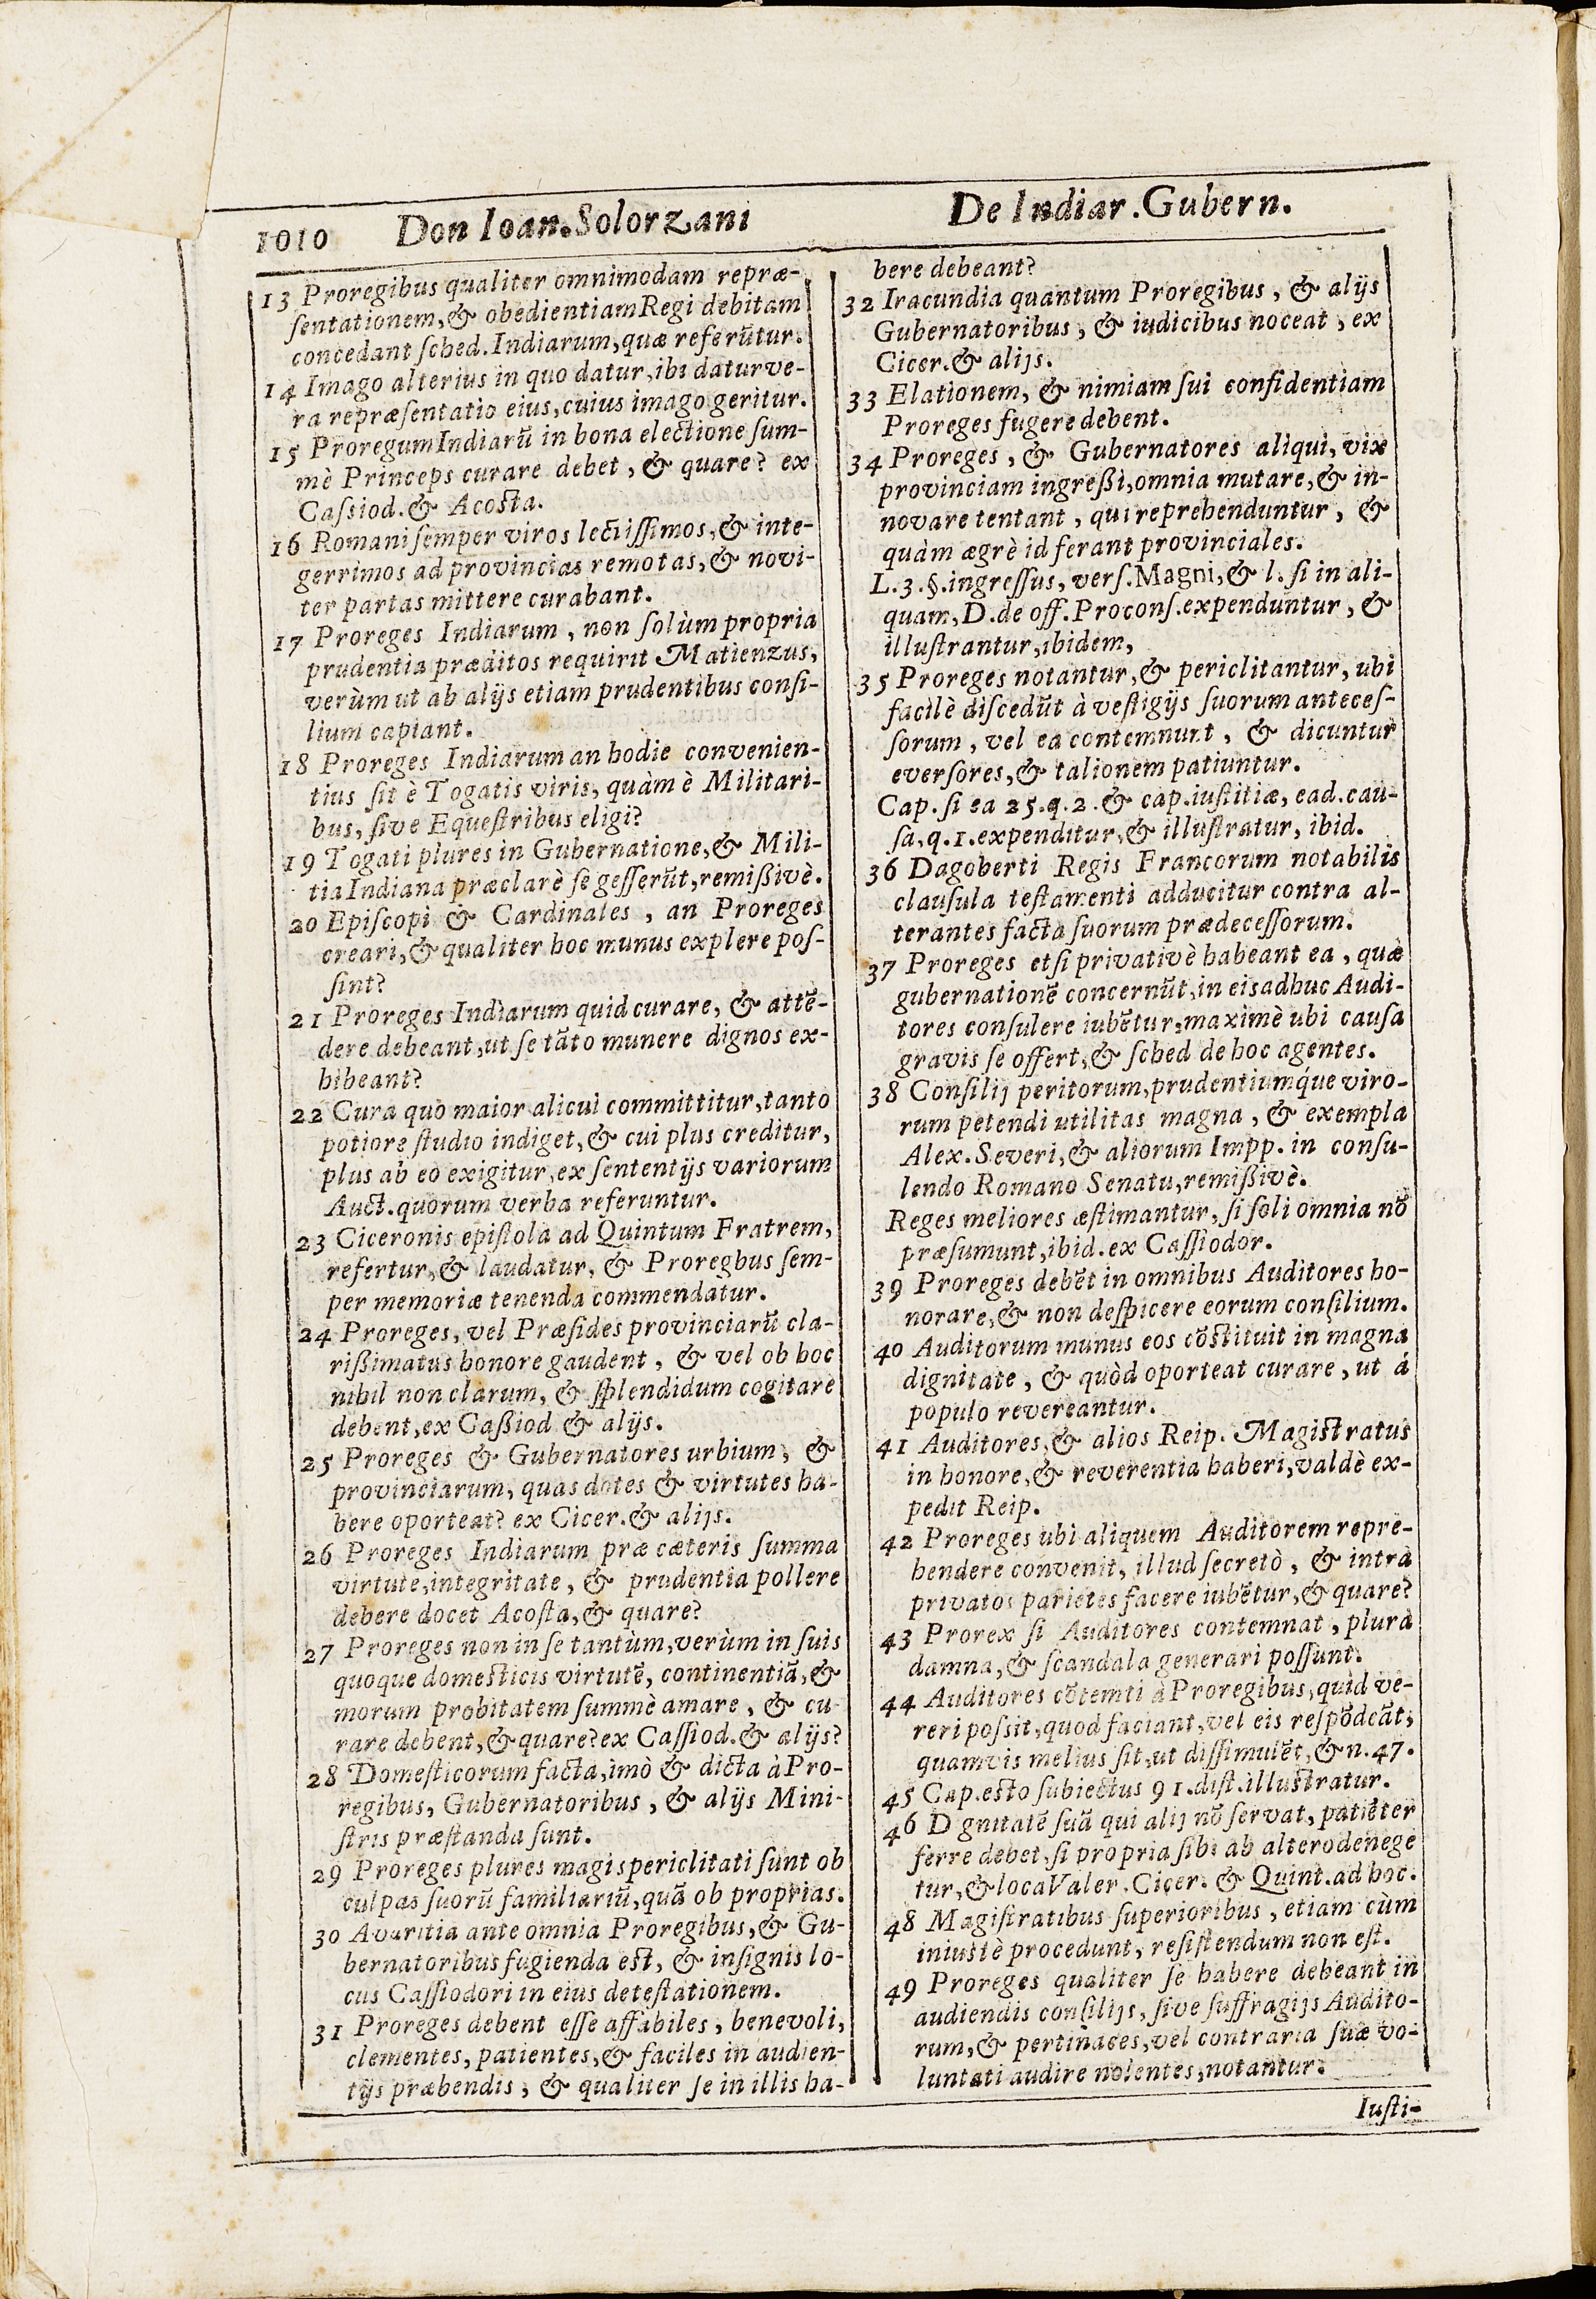 1010 Don Ioan. Solorzani De Indiar. Gubern.
13 Proregibus qualiter omnimodam repræ-
ſentationem, & obedientiam Regi debitam
concedant ſched. Indiarum, quæ referūtur.
14 Imago alterius in quo datur, ibi datur ve-
ra repræſentatio eius, cuius imago geritur.
15 Proregum Indiarū in bona electione ſum-
mè Princeps curare debet, & quare? ex
Caſsiod. & Acosta.
16 Romani ſemper viros lectiſſimos, & inte-
gerrimos ad provincias remotas, & novi-
ter partas mittere curabant.
17 Proreges Indiarum, non ſolùm propria
prudentia præditos requirit Matienzus,
verùm ut ab alijs etiam prudentibus conſi-
lium capiant.
18 Proreges Indiarum an hodie convenien-
tius ſit è Togatis viris, quàm è Militari-
bus, ſive Equeſtribus eligi?
19 Togati plures in Gubernatione, & Mili-
tia Indiana præclarè ſe geſſerūt, remißivè.
20 Epiſcopi & Cardinales, an Proreges
creari, & qualiter hoc munus explere poſ-
ſint?
21 Proreges Indiarum quid curare, & attē-
dere debeant, ut ſe tāto munere dignos ex-
hibeant?
22 Cura quo maior alicui committitur, tanto
potiore ſtudio indiget, & cui plus creditur,
plus ab eo exigitur, ex ſententijs variorum
Auct. quorum verba referuntur.
23 Ciceronis epiſtola ad Quintum Fratrem,
refertur, & laudatur, & Proregbus ſem-
per memoriæ tenenda commendatur.
24 Proreges, vel Præſides provinciarū cla-
rißimatus honore gaudent, & vel ob hoc
nihil non clarum, & ſplendidum cogitare
debent, ex Caßiod & alijs.
25 Proreges & Gubernatores urbium, &
provinciarum, quas dotes & virtutes ha-
bere oporteat? ex Cicer. & alijs.
26 Proreges Indiarum præ cæteris ſumma
virtute, integritate, & prudentia pollere
debere docet Acoſta, & quare?
27 Proreges non in ſe tantùm, verùm in ſuis
quoque domesticis virtutē, continentiā, &
morum probitatem ſummè amare, & cu-
rare debent, & quare? ex Caſſiod. & alijs?
28 Domeſticorum facta, imò & dicta à Pro-
regibus, Gubernatoribus, & alijs Mini-
ſtris præſtanda ſunt.
29 Proreges plures magis periclitati ſunt ob
culpas ſuorū familiariū, quā ob proprias.
30 Avaritia ante omnia Proregibus, & Gu-
bernatoribus fugienda est, & inſignis lo-
cus Caſſiodori in eius deteſtationem.
31 Proreges debent eſſe affabiles, benevoli,
clementes, patientes, & faciles in audien-
tijs præbendis, & qualiter ſe in illis ha-
bere debeant?
32 Iracundia quantum Proregibus, & alijs
Gubernatoribus, & iudicibus noceat, ex
Cicer. & alijs.
33 Elationem, & nimiam ſui confidentiam
Proreges fugere debent.
34 Proreges, & Gubernatores aliqui, vix
provinciam ingreßi, omnia mutare, & in-
novare tentant, qui reprehenduntur, &
quàm ægrè id ferant provinciales.
L. 3. §. ingreſſus, verſ. Magni, & l. ſi in ali-
quam, D. de off. Proconſ. expenduntur, &
illuſtrantur, ibidem,
35 Proreges notantur, & periclitantur, ubi
facilè diſcedūt à veſtigijs ſuorum anteceſ-
ſorum, vel ea contemnunt, & dicuntur
everſores, & talionem patiuntur.
Cap. ſi ea 25. q. 2. & cap. iuſtitiæ, ead. cau-
ſa, q. 1. expenditur, & illuſtratur, ibid.
36 Dagoberti Regis Francorum notabilis
clauſula teſtamenti adducitur contra al-
terantes facta ſuorum prædeceſſorum.
37 Proreges etſi privativè habeant ea, quæ
gubernationē concernūt, in eis adhuc Audi-
tores conſulere iubētur, maximè ubi cauſa
gravis ſe offert, & ſched de hoc agentes.
38 Conſilij peritorum, prudentiumq́ue viro-
rum petendi utilitas magna, & exempla
Alex. Severi, & aliorum Impp. in conſu-
lendo Romano Senatu, remißivè.
Reges meliores æſtimantur, ſi ſoli omnia nō
præſumunt, ibid. ex Caſſiodor.
39 Proreges debēt in omnibus Auditores ho-
norare, & non deſpicere eorum conſilium.
40 Auditorum munus eos cōſtituit in magna
dignitate, & quòd oporteat curare, ut á
populo revereantur.
41 Auditores, & alios Reip. Magiſtratus
in honore, & reverentia haberi, valdè ex-
pedit Reip.
42 Proreges ubi aliquem Auditorem repre-
hendere convenit, illud ſecretò, & intrà
privatos parietes facere iubētur, & quare?
43 Prorex ſi Auditores contemnat, plura
damna, & ſcandala generari poſſunt.
44 Auditores cōtemti à Proregibus, quid ve-
reri poſsit, quod faciant, vel eis reſpōdeāt,
quamvis melius ſit, ut diſſimulēt, & n. 47.
45 Cap. esto ſubiectus 91. diſt. illuſtratur.
46 D gnitatē ſuā qui alij nō ſervat, patiēter
ferre debet, ſi propria ſibi ab altero denege
tur, & loca Valer. Cicer. & Quint. ad hoc.
48 Magiſtratibus ſuperioribus, etiam cùm
iniustè procedunt, reſiſtendum non eſt.
49 Proreges qualiter ſe habere debeant in
audiendis conſilijs, ſive ſuffragijs Audito-
rum, & pertinaces, vel contraria ſuæ vo-
luntati audire nolentes, notantur.
Iuſti-